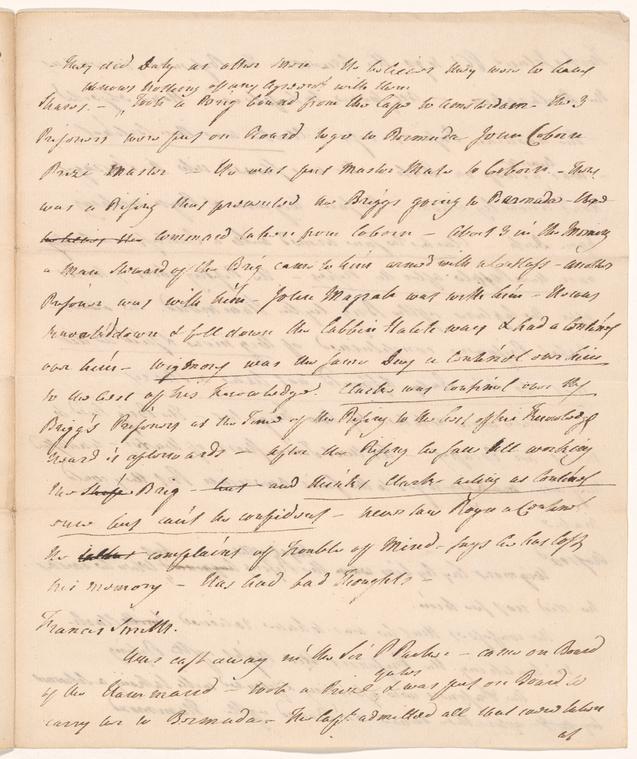 they did Duty as other Men He believes they were to have
knows nothing of any Agreemt with them
Shares. - Took a Brig bound from the Cape to Amsterdam - The 3
Prisoners were put on Board to go to Bermuda John Coborn
Prize Master He was put Master Mate to Coborn - There
was a Rising that prevented the Briggs going to Bermuda - The
command taken from Coborn - About 3 in the Morning
a Man Steward of the Brig came to him armed with a Cutlass - another
Prisoner was with him - John Magrath was with him - He was
down & fell down the Cabbin Hatch way & had a Centinel
over him - Wigmore was the same Day a Centinel over him
to the best of his Knowledge. Clarke was Centinel over the
Brigg's Prisoners at the Time of the Rising to the best of his Knowledge
heard it afterwards - after the Rising he saw all working
the Brig - and thinks Clarke acting as Centinel
once but can't be confident - never saw Rogers a Centinel
He complains of Trouble of Mind - says he has lost
his Memory - Has had bad Thoughts -
Francis Smith.
Was cast away in the Sir P Parker - came on Board
of the - took a Prize & was put on Board to
carry her to Bermuda - The Capt admitted all that came before
as